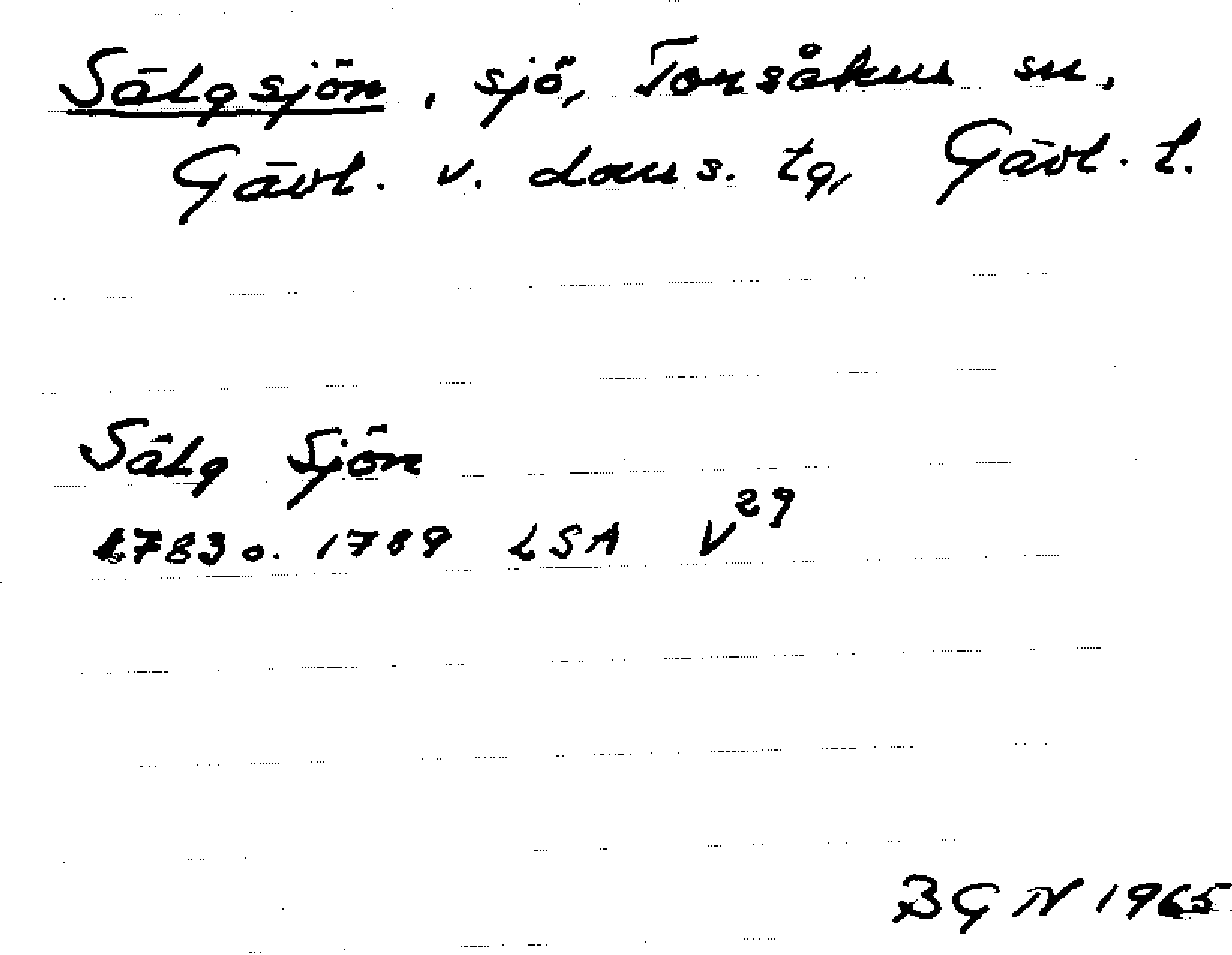 Sälgsjön, sjö, Torsåkers sn,
Gävl. v. doms. tg, Gävl. l.
Sälg Sjön
1783 o. 1789 LSA V29
BGN 1965